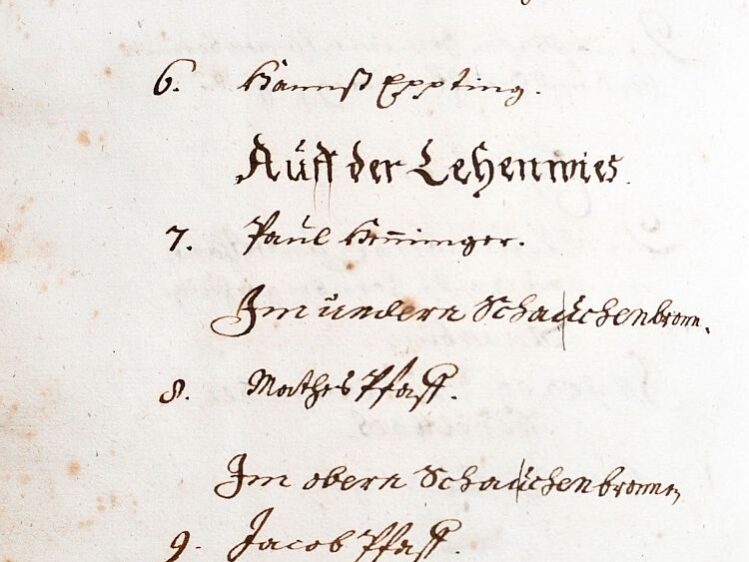 6. Hannß Eppting.
Auff der Lehenwies.
7. Paul Henninger.
Im undern Schauchenbronn.
8. Mathes Pfaff.
Im obern Schauchenbronnen
9. Jacob Pfaff.